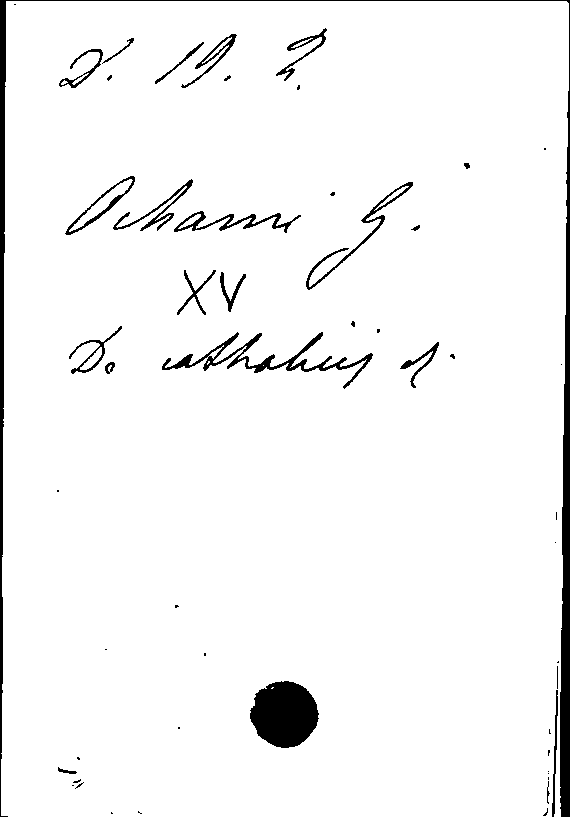 D. 19. 2.
Ochami G.
XV
De catholicis